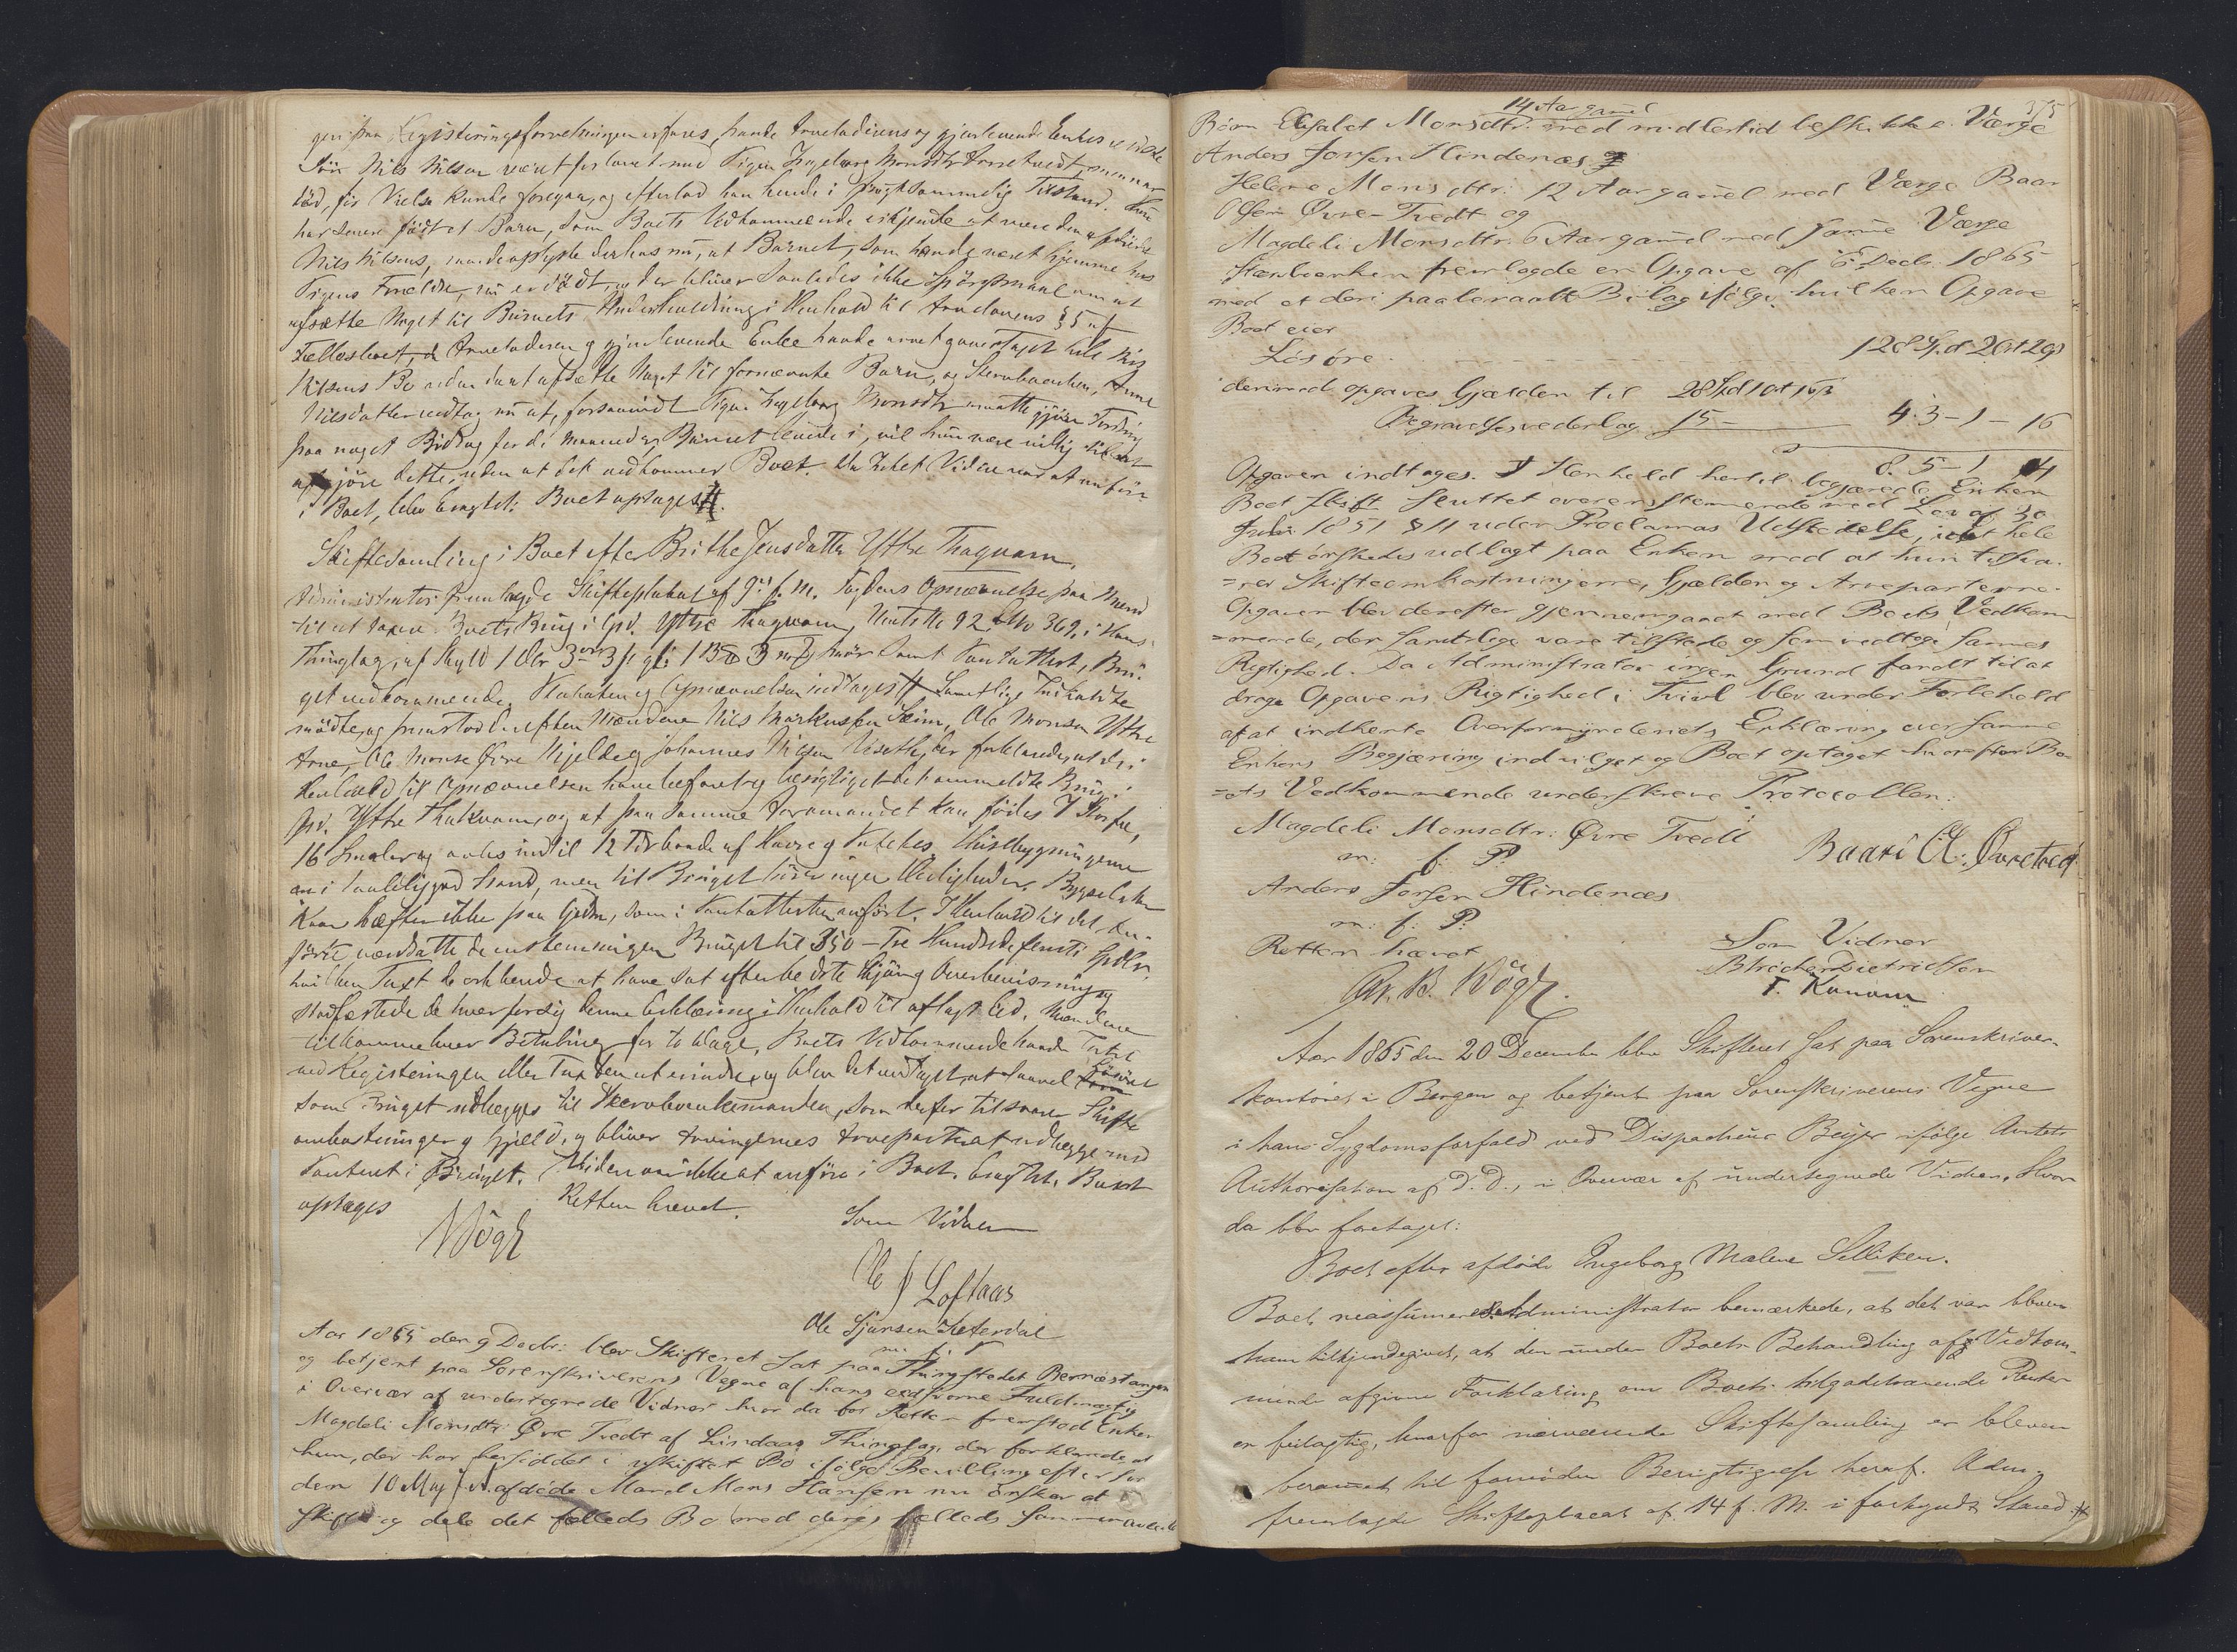 gen paa Registeringsforretningen erfares, havde Arveladerens og gjenlevende Enkes
Søn Nils Nilsen været forlovet med Pigen Ingeborg Monsdtr
død, før Vielse kunde foregaa, og efterlod han hende i frugtsommelig Tilstand. Hun
har senere født et Barn, som Boets Vedkommende erkjendte at være den afdøde
Nils Nilsens, man de oplyste derhos nu, at Barnet, som havde været hjemme hos
Pigens Forældre, nu er dødt, og der bliver saaledes ikke Spørgsmaal om at
afsætte Noget til Barnets Underholdning i Henhold til Arvelovens § 5 af
Fællesboet, Arveladeren og gjenlevende Enke havde arvet og overtaget hele Nils
Nilsens Bo uden deraf at afsætte Noget til fornævnte Barn, og Stervboenken, Anne
Nilsdatter vedtog nu at, forsaavidt Pigen Ingeborg Monsdtr maatte gjøre Fordring
paa noget Bidrag for de Maaneder, Barnet levede i, vil hun være villig til at
afgjøre dette, uden at det vedkommer Boet. Da Intet Videre var at anføre
i Boet, blev Eragtet: Boet optages.
Skiftesamling i Boet efter Brithe Jensdatter Yttre Thaqvam.
Administrator fremlagde Skifteplakat af 9de f. M. Fogdens Opnævnelse paa Mænd
til at taxere Boets Brug i Grd. Yttre Thaqvam, Matr. No 92 Lbr 369, i Haus
Thinglag, af Skyld 1 Dlr 3 ort 3 ß, gl. 1 B hvor samt Pantattest, Bru-
get vedkommende. Plakaten og Opnævnelsen indtages Samtlige Indkaldte
mødte, og fremstod derefter Mændene Nils Markussen Seim, Ole Monsen Yttre
Arne, Ole Monsen Øvre Mjelde og Johannes Nilsen, der forklarede, at de i
Henhold til Opnævnelsen have befaret og besigtiget det ommeldte Brug i
Grd. Yttre Thakvam, og at paa samme Aaromandet kan fødes 7 Storfæ,
16 Smaler og avles indtil 12 Tdr baade af Havre og Poteter. Husebygningerne
ere i taalelig god Stand, men til Bruget høre ingen Herligheder. Bygselske
Kaar hæfter ikke paa Gaarden, som i Pantattesten anført. I Henhold til det An-
førte værdsatte de enstemmigen Bruget til 350 - Tre Hundrede femti Spdlr.
hvilken Taxt de erklærede at have sat efter bedste Skjøn og Overbevisning og
stadfæstede de hver for sig denne Erklæring i Henhold til aflagt Ed. Mændene
tilkomme hver Betaling for to Dage. Boets Vedkommende havde Intet
ved Registeringen eller Taxten at erindre, og blev det vedtaget, at saavel Løsøret
som Bruget udlægges til Stervboenkemanden, som derfor tilsvarer Skifte
omkostninger og Gjæld, og bliver Arvingernes Arvepart at udlægge med
Panteret i Bruget. Videre var ikke at anføre i Boet. Eragtet. Boet
optages
Retten hævet.
Som Vidner
Vogt
Ole J Loftaas
Ole Sjursen Sæterdal
m f P
Aar 1865 den 9 Decbr: blev Skifteret sat paa Thingstedet Bernæstangen
og betjent paa Sorenskriverens Vegne af hans edsvorne Fuldmægtig
i Overvær af undertegnede Vidner hvor da for Retten fremstod Enken
Magdeli Monsdtr. Øvre Tvedt af Lindaas Thinglag, der forklarede at
hun, der har hensiddet i uskiftet Bo ifølge Bevilling efter sin
den 10 May afdøde Mand Mons Hansen nu ønsker at
skifte og dele det fælleds Bo med deres fælleds sammenavlede
375
14 Aar gammel
Børn Elisabet Monsdtr. med midlertid beskikket Værge
Anders Forsen Hindenæs
Helene Mons dtr: 12 Aar gammel med Værge Baar
Olsen Øvre-Tvedt og
Magdeli Monsdtr. 6 Aar gammel med samme Værge
Stærvboenken fremlagde en Opgave af 6 Decbr 1865
med et deri paaberaabt Bilag ifølge hvilken Opgave
Boet eier
Løsøre 128 Spd 2 ort 2 ß
derimod opgaves Gjælden til 28 Spd 1 ort 16 ß
Begravelsesvederlag 15 — 43 - 1 - 16
85 - 1 4
Opgaven indtages. I Henhold hertil begjærede Enken
Boet skift sluttet overensstemmende med Lov af 30
Juli 1851 § 11 uden Proclamas Udstedelse, idet hele
Boet ønskedes udlagt paa Enken mod at hun tilsva-
=rer Skifteomkostningerne, Gjælden og Arveparterne.
Opgaven blev derefter gjennemgaaet med Boets Vedkom
=mende, der samtlige vare tilstede og som vedtoge sammes
Rigtighed. Da Administrator ingen Grund fandt til at
drage Opgavens Rigtighed i Tvivl blev under Forbehold
af at indhente Overformynderiets Erklæring over samme
Enkens Begjæring indvilget og Boet optaget hvorefter Bo-
=ets Vedkommende underskreve Protocollen:
Magdeli Monsdtr: Øvre Tvedt
m: f: P:
Baar O. Øvretvedt
Anders Forsen Hindenæs
m: f: P:
Retten hævet
Som Vidner
Vogt.
Brochen Dietrichson
T. Kanam
Aar 1865 den 20 December blev Skifteret sat paa Sorenskriver-
kontoret i Bergen og betjent paa Sorenskriverens Vegne
i hans Sygdomsforfald ved Dispacheur Beyer ifølge Amtets
Authorisation af D. D., i Overvær af undertegnede Vidner, Hvor
da blev foretaget:
Boet efter afdøde Ingeborg Malene Selliken.
Boet reassumeredes. Administrator bemærkede, at det var bleven
ham tilkjendegivet, at den under Boets Behandling af Vedkom-
mende afgivne Forklaring om Boets tilgodehavende Renter
er feilagtig, hvorfor nærværende Skiftesamling er bleven
berammet til fornøden Berigtigelse heraf. Adm.
fremlagte Skifteplacat af 14 f. M. i forkyndt Stand